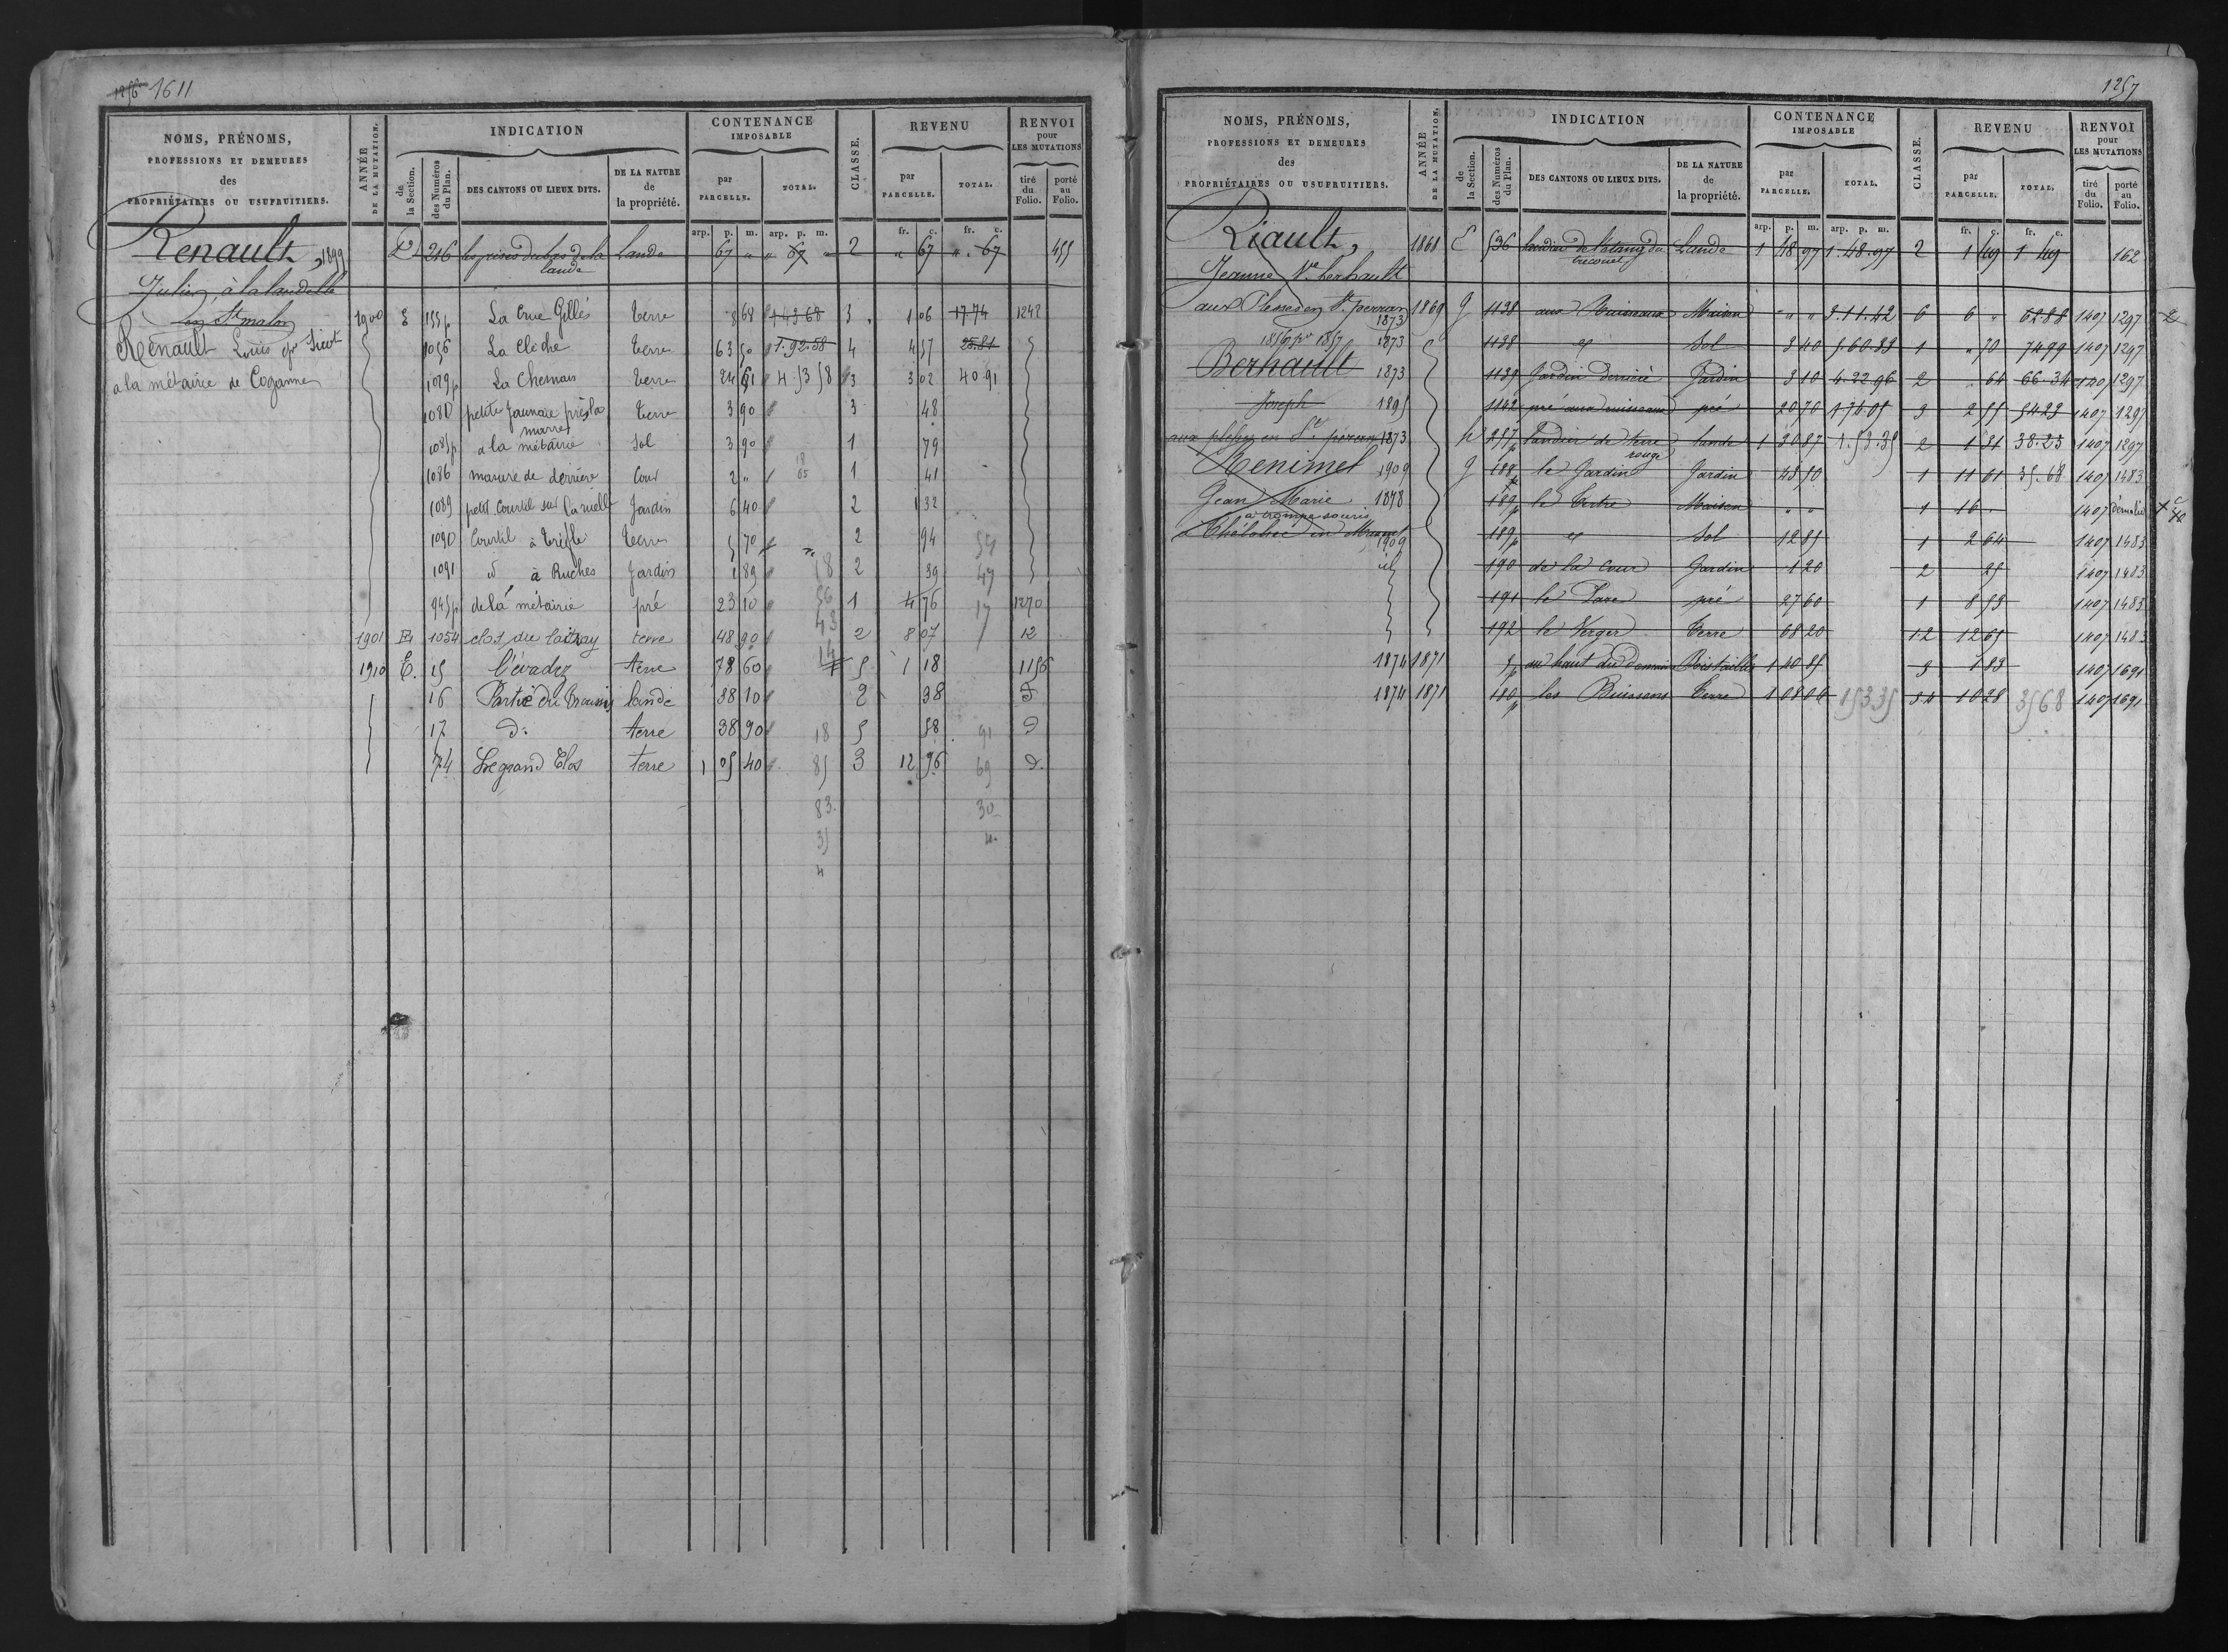 1256 1611
NOMS, PRÉNOMS,
PROFESSIONS ET DEMEURES
des
PROPRIÉTAIRES OU USUFRUITIERS.
ANNÉE
DE LA MUTATION.
INDICATION
de
la Section.
des Numéros
du Plan.
DES CANTONS OU LIEUX DITS.
DE LA NATURE
de
la propriété.
CONTENANCE
IMPOSABLE
par
PARCELLE.
TOTAL.
CLASSE.
REVENU
par
PARCELLE.
TOTAL.
RENVOI
pour
LES MUTATIONS
tiré
du
Folio.
porté
au
Folio.
arp. p. m. arp. p. m. fr. c. fr. c.
Renault, 1899
Julien, à la landelle
en St malon
Renault Louis
a la métairie de Coganne
D 216 les prises du bas de la lande Lande 67 " " 67 " 2 " 67 " 67 455
1900 E 155p La Crue Gillés terre 8 68 1 43 68 3 1 06 17 74 1242
1056 La Clèche terre 63 50 1.92.58 4 4 57 25.81
1079p La Chesnais terre 24 61 4 53 58 3 3 02 40 91
1080 petite Jaunaie près la marre terre 3 90 3 48
1085p a la métairie Sol 3 90 1 79
1086 masure de derrière Cour 2 " 1 41
1089 petit Courtil sur la ruelle Jardin 6 40 2 1 32
1090 Courtil à trèfle terre 5 70 2 94
1091 d à Ruches Jardin 1 89 2 39
945p de la métairie pré 23 10 1 4 76 1270
1901 E 1054 clos du laitray terre 48 90 2 8 07 12
1910 E. 15 terre 78 60 5 1 18 1156
16 lande 38 10 2 38 d
17 d: terre 38 90 5 58 d
74 Le grand Clos terre 1 05 40 3 12 96 d.
1257
NOMS, PRÉNOMS,
PROFESSIONS ET DEMEURES
des
PROPRIÉTAIRES OU USUFRUITIERS.
ANNÉE
DE LA MUTATION.
INDICATION
de
la Section.
des Numéros
du Plan.
DES CANTONS OU LIEUX DITS.
DE LA NATURE
de
la propriété.
CONTENANCE
IMPOSABLE
par
PARCELLE.
TOTAL.
CLASSE.
REVENU
par
PARCELLE.
TOTAL.
RENVOI
pour
LES MUTATIONS
tiré
du
Folio.
porté
au
Folio.
arp. p. m. arp. p. m. fr. c. fr. c.
Riault,
Jeanne Ve berhault
Berhault
Joseph
Jean Marie
1861 E 536 landier de l'étang du Lande 1 48 97 1.48.97 2 1 49 1 49 162
1869 G 1138 aux Ruisseaux Maison " " " 3.11.42 6 6 " 62.88 1407 1297
1873 1138 d Sol 3 40 5.60.33 1 " 70 74 99 1407 1297
1873 1139 Jardin derriere Jardin 3 10 4.22.96 2 64 66.34 1407 1297
1895 1142 pré aux ruisseaux pré 20 70 1.76.05 3 2 55 54 23 1407 1297
1873 257p Landier de terre rouge lande 1 30 87 1.53.35 2 1 31 38.23 1407 1297
1909 G 188 le Jardin Jardin 48 50 1 11 61 35.68 1407 1483
1878 189p le tertre Maison " " 1 16 . 1407 démolie
1909 189p d Sol 12 85 1 2 64 1407 1483
190 de la cour Jardin 1 20 2 25 1407 1483
191 le Pare pré 27 60 1 8 53 1407 1483
192 le Verger terre 68 20 1.2 12 65 1407 1483
1874 1871 5p au haut du domaine Bois taillis 1 40 85 3 1 83 1407 1691
1874 1871 180p les Buissons terre 1 08 06 15335 3.4 10 28 3568 1407 1691